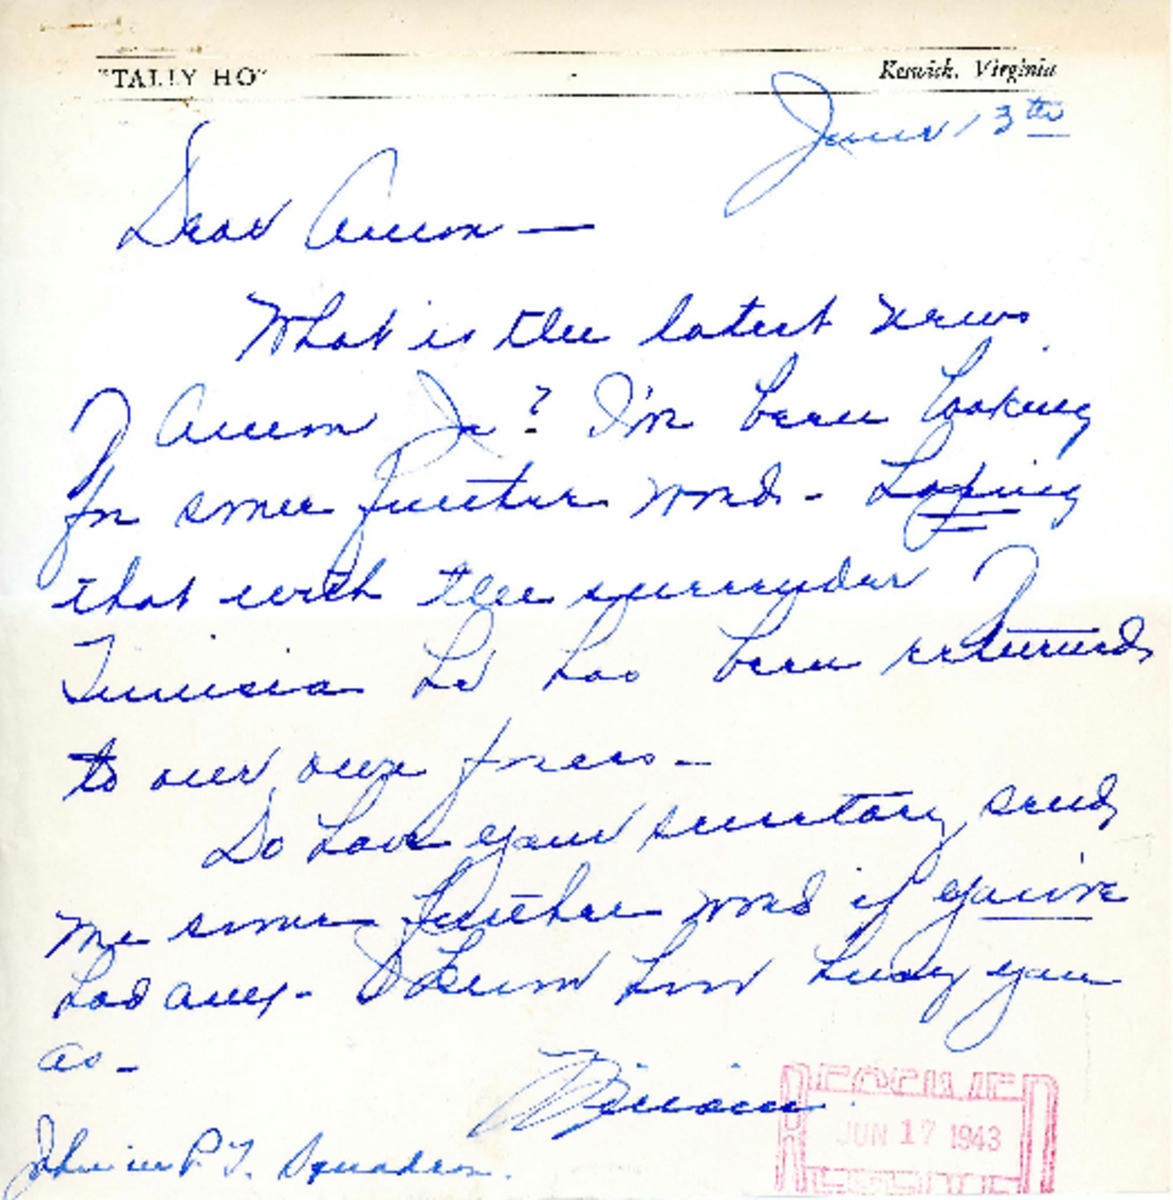 "TALLY HO"
Keswick, Virginia
June 13th
Dear Amon —
What is the latest news
of Amon Jr? I've been looking
for some further word - hoping
that with the surrender of
Tunisia he has been returned
to our own forces -
Do have your secretary send
me some further word if you've
had any - I know how busy you
are -
RECEIVED
JUN 17 1943
P.T. Squadron.